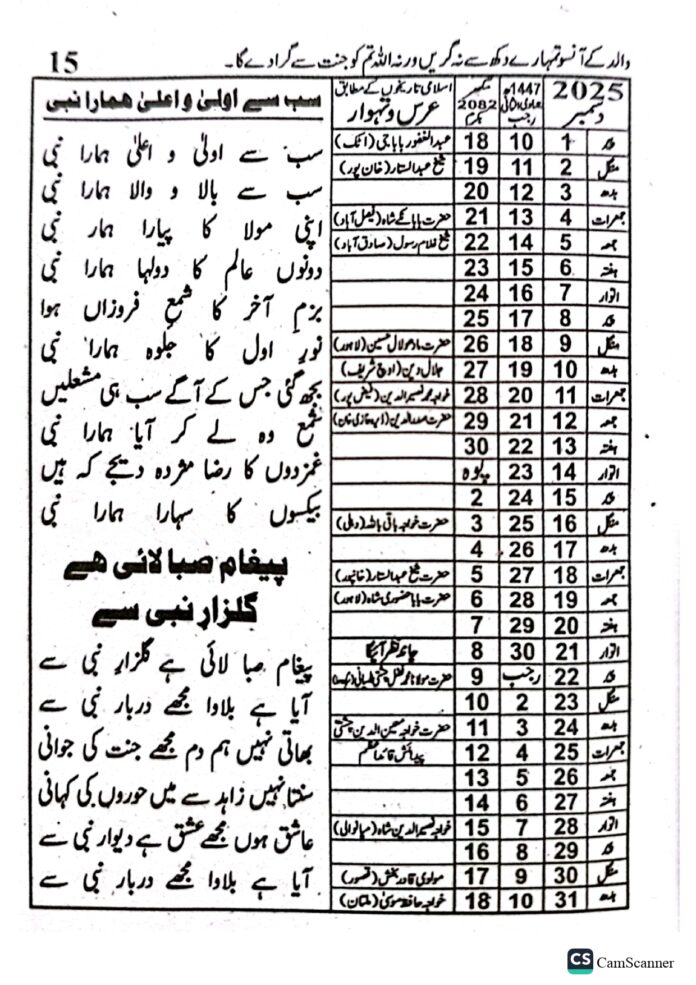 والد کے آنسو تمہارے دکھ سے نہ گریں ورنہ اللہ تم کو جنت سے گرا دے گا۔ 15
2025 دسمبر 1447ھ جمادی الثانی رجب 2082 اسلامی تاریخوں کے مطابق عرس و تہوار
1 10 18 عبدالغفور باباجی (اٹک)
منگل 2 11 19 شیخ عبدالستار (خان پور)
بدھ 3 12 20
جمعرات 4 13 21 حضرت بابا کے شاہ (فیصل آباد)
جمعہ 5 14 22 شیخ غلام رسول (صادق آباد)
ہفتہ 6 15 23
اتوار 7 16 24
8 17 25
منگل 9 18 26 حضرت مادھولال حسین (لاہور)
بدھ 10 19 27 جلال دین (اوچ شریف)
جمعرات 11 20 28 خواجہ محمد نصیرالدین (فیض پور)
جمعہ 12 21 29 حضرت صدرالدین (ڈیرہ غازی خان)
ہفتہ 13 22 30
اتوار 14 23 پوہ
15 24 2
منگل 16 25 3 حضرت خواجہ باقی باللہ (دہلی)
بدھ 17 26 4
جمعرات 18 27 5 حضرت شیخ عبدالستار (خانپور)
جمعہ 19 28 6 حضرت بابا حضوری شاہ (لاہور)
ہفتہ 20 29 7
اتوار 21 30 8 چاند نظر آئیگا
22 رجب 9 حضرت مولانا محمد
منگل 23 2 10
بدھ 24 3 11 حضرت خواجہ معین الدین چشتی
جمعرات 25 4 12 پیدائش قائداعظم
جمعہ 26 5 13
ہفتہ 27 6 14
اتوار 28 7 15 خواجہ نصیرالدین شاہ (میانوالی)
29 8 16
منگل 30 9 17 مولوی قادر بخش (قصور)
بدھ 31 10 18 خواجہ حافظ موسیٰ (ملتان)
سب سے اولیٰ و اعلیٰ ھمارا نبی
سب سے اولیٰ و اعلیٰ ہمارا نبی
سب سے بالا و والا ہمارا نبی
اپنی مولا کا پیارا ہمار نبی
دونوں عالم کا دولہا ہمارا نبی
بزم آخر کا شمع فروزاں ہوا
نورِ اول کا جلوہ ہمارا نبی
بجھ گئی جس کے آگے سب ہی مشعلیں
شمع وہ لے کر آیا ہمارا نبی
غمزدوں کا رضا مژدہ دیجے کہ ہیں
بیکسوں کا سہارا ہمارا نبی
پیغام صبا لائی ھے
گلزارِ نبی سے
پیغام صبا لائی ہے گلزارِ نبی سے
آیا ہے بلاوا مجھے دربار نبی سے
بھاتی نہیں ہم دم مجھے جنت کی جوانی
سنتا نہیں زاہد سے میں حوروں کی کہانی
عاشق ہوں مجھے عشق ہے دیوارِ نبی سے
آیا ہے بلاوا مجھے دربار نبی سے
CS CamScanner